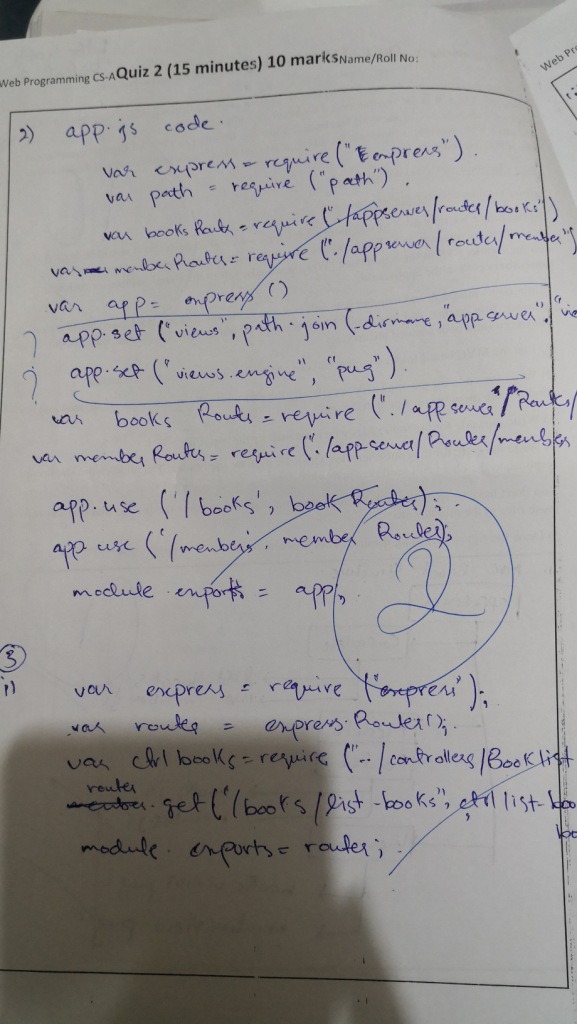 Web Programming CS-A Quiz 2 (15 minutes) 10 marks Name/Roll No:
Web Pr
2) app.js code.
var express = require ("express").
var path = require ("path").
var books Routes = require ("./appserver/routes/books")
var member Routes = require ("./appserver/routes/member")
var app = express ()
? app.set ("views", path.join (-dirname, "app server", "vie
? app.set ("views.engine", "pug").
var books Routes = require ("./appserver/Routes/
var member Routes = require ("./appserver/Routes/members
app.use ('/books', book Routes);
app use ('/members', member Routes);
module exports = app;
2
3
i)
var express = require ("express");
var router = express.Router();
var ctrl books = require ("../controllers/Booklist
router.get ("/books/list-books", ctrl list-boo
boo
module. exports = router;